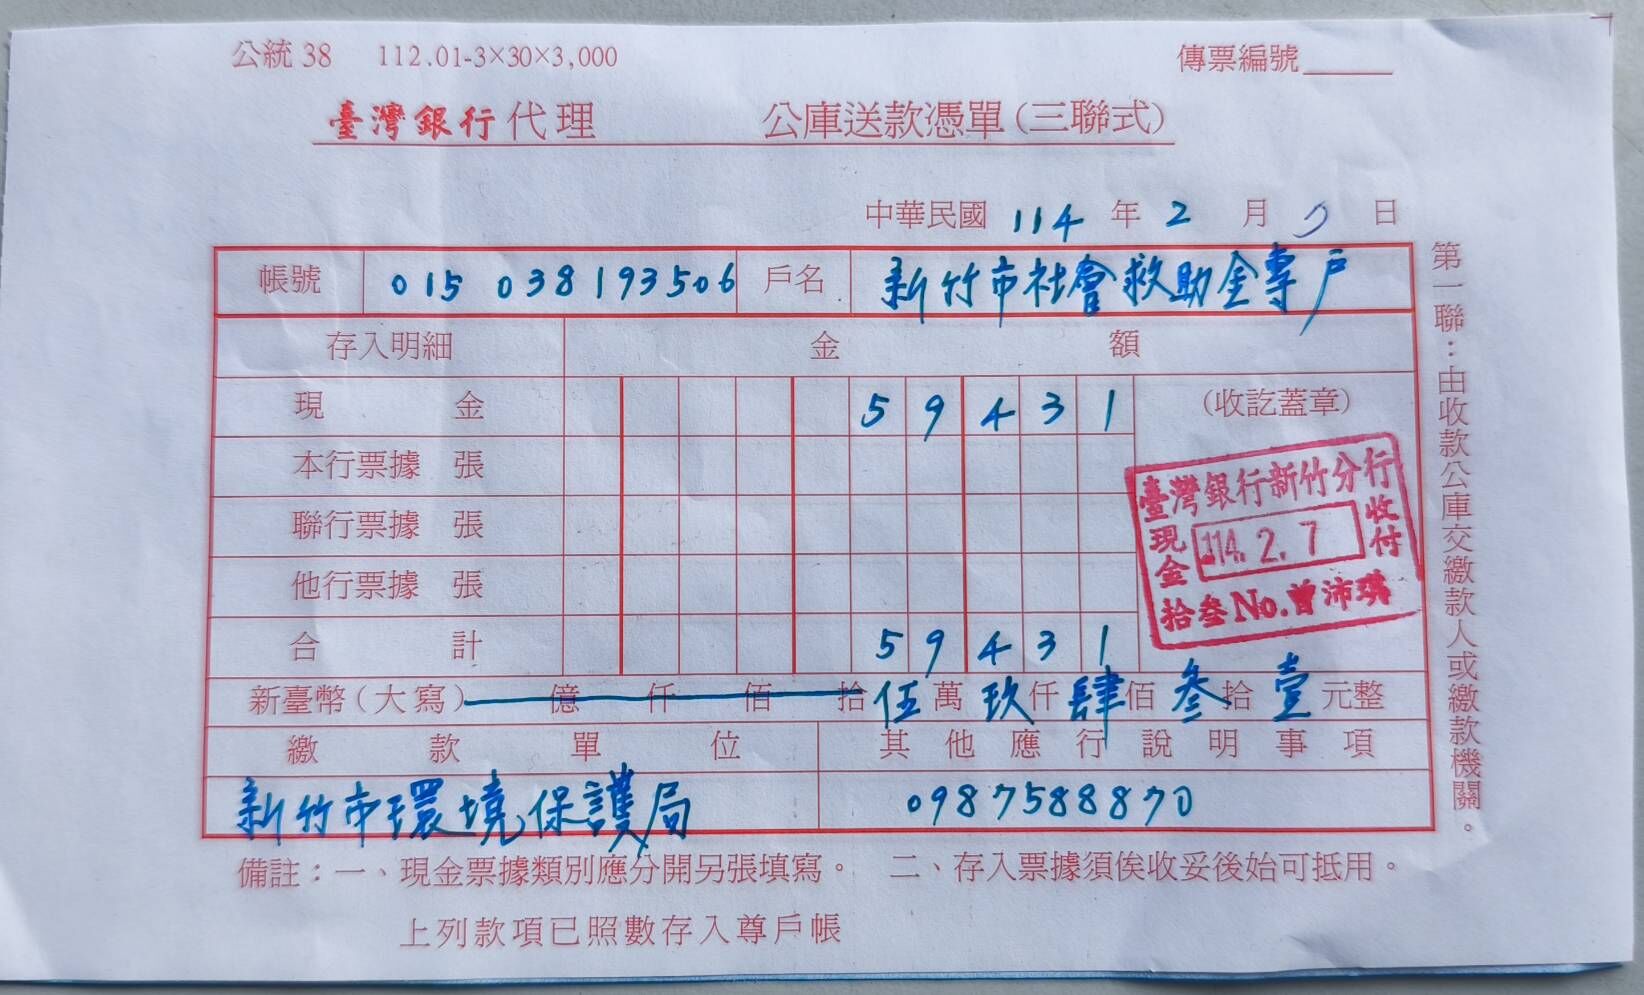 公統 38 112.01-3×30×3,000 傳票編號
臺灣銀行代理 公庫送款憑單(三聯式)
中華民國 114 年 2 月 7 日
帳號 015 038193506 戶名 新竹市社會救助金專戶
存入明細 金額
現金 59431 (收訖蓋章)
本行票據 張
聯行票據 張
他行票據 張
合計 59431
臺灣銀行新竹分行
現金 114.2.7 收付
拾叁No.曾沛琪
新臺幣(大寫) 億 仟 佰 拾 伍 萬 玖 仟 肆 佰 叁 拾 壹 元整
繳款單位 其他應行說明事項
新竹市環境保護局 0987588870
備註:一、現金票據類別應分開另張填寫。 二、存入票據須俟收妥後始可抵用。
上列款項已照數存入尊戶帳
第一聯:由收款公庫交繳款人或繳款機關。